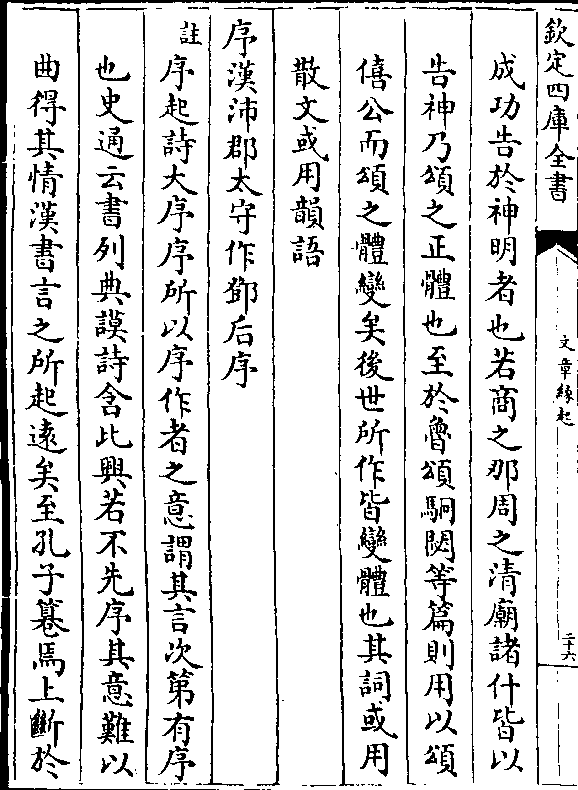 欽定四庫全書
文章緣起
二十六
成功告於神明者也若商之那周之清廟諸什皆以
告神乃頌之正體也至於魯頌駉閟等篇則用以頌
僖公而頌之體變矣後世所作皆變體也其詞或用
散文或用韻語
序漢沛郡太守作鄧后序
註序起詩大序序所以序作者之意謂其言次第有序
也史通云書列典謨詩含比興若不先序其意難以
曲得其情漢書言之所起遠矣至孔子篹焉上斷於